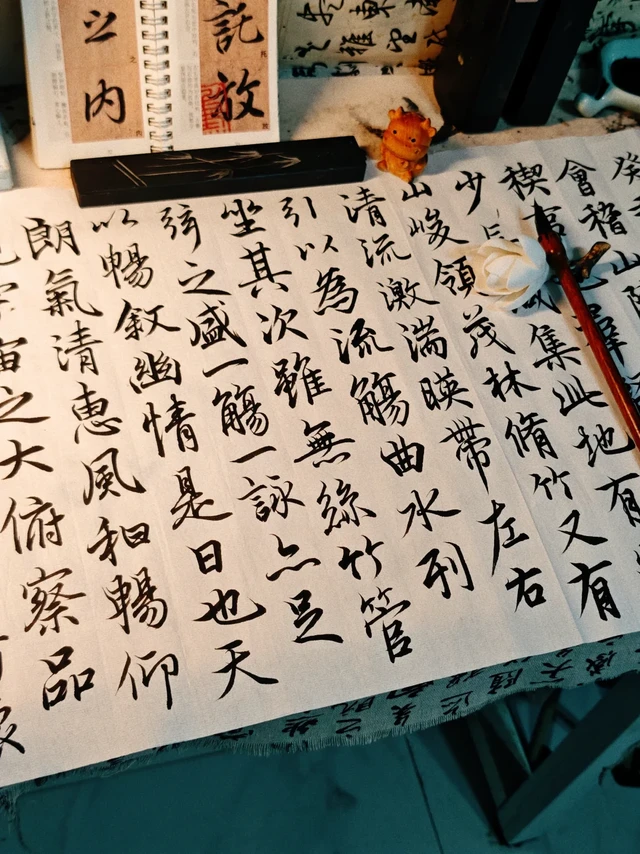 託放
之內
癸
會稽山陰
禊
少長咸集此地有
山峻領茂林脩竹又有
清流激湍暎帶左右
引以為流觴曲水列
坐其次雖無絲竹管
弦之盛一觴一詠亦足
以暢敘幽情是日也天
朗氣清惠風和暢仰
觀宇宙之大俯察品